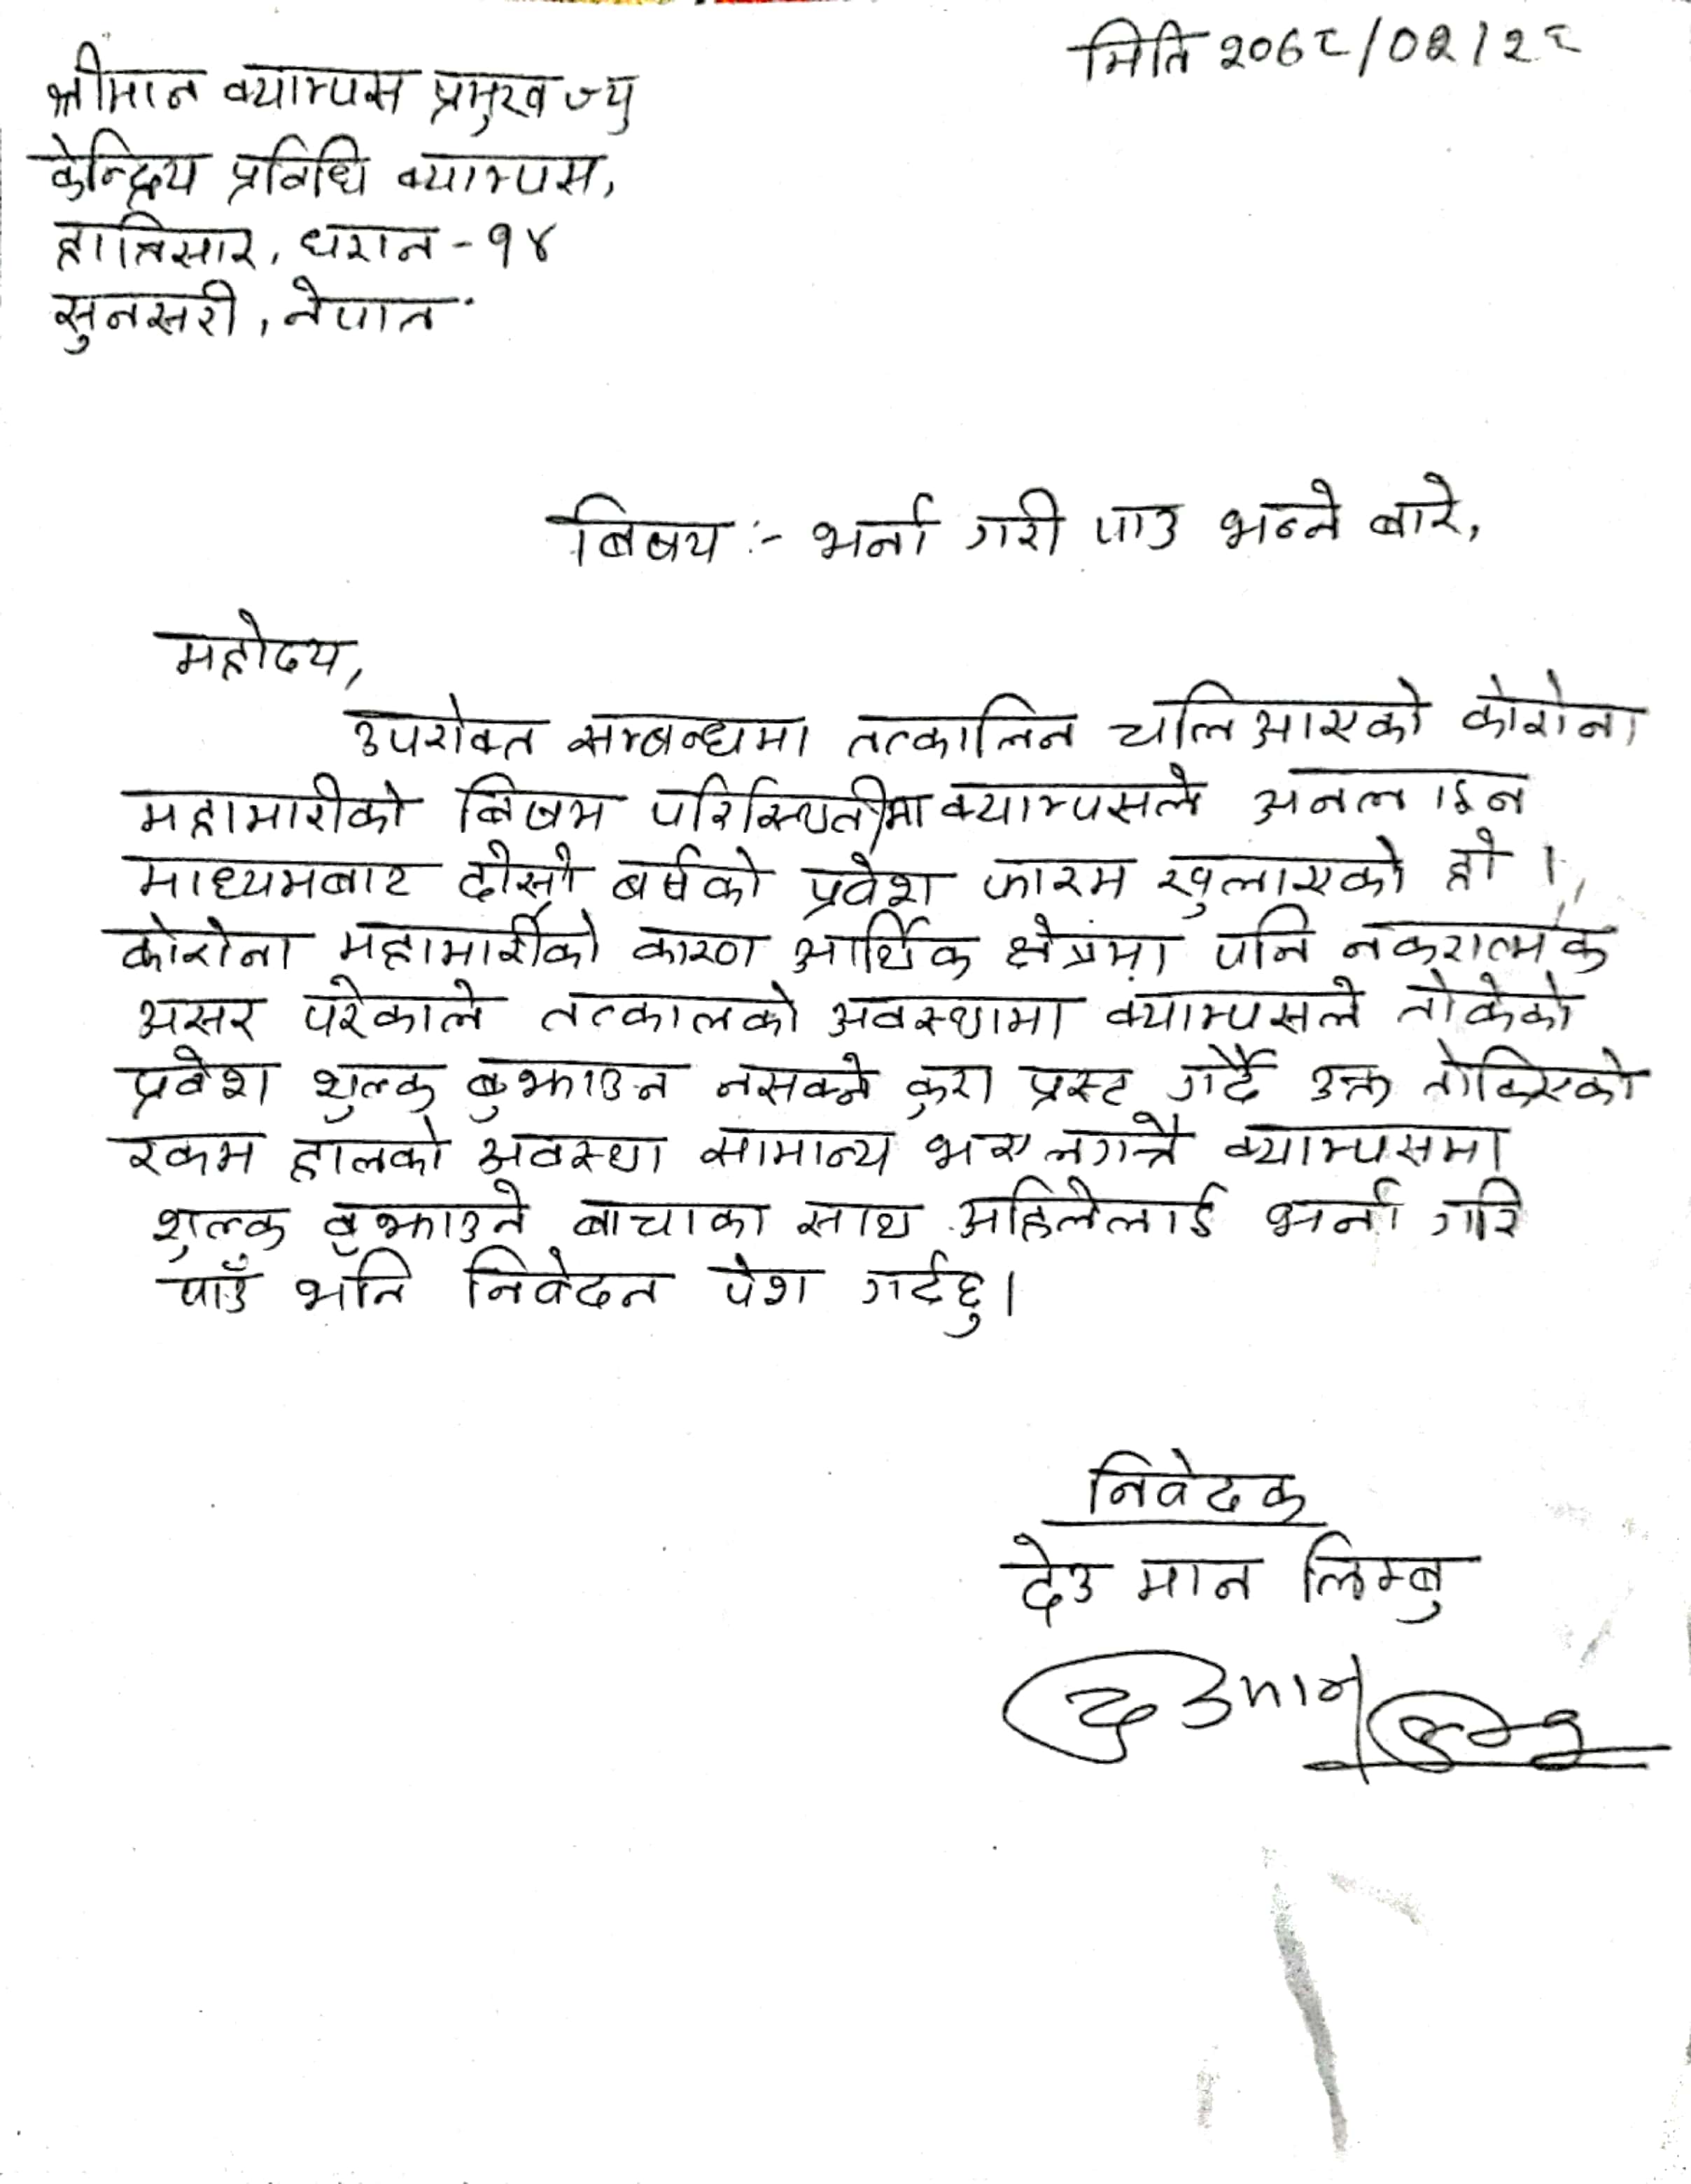 मिति २०७८/०२/२८
श्रीमान क्याम्पस प्रमुख ज्यु
केन्द्रिय प्रविधि क्याम्पस,
हात्तिसार, धरान - १४
सुनसरी, नेपाल
बिषय :- भर्ना गरी पाउ भन्ने बारे,
महोदय,
उपरोक्त सम्बन्धमा तत्कालिन चलिआएको कोरोना
महामारीको बिषम परिस्थितीमा क्याम्पसले अनलाइन
माध्यमबाट दोस्रो बर्षको प्रवेश फारम खुलाएको हो ।
कोरोना महामारीको कारण आर्थिक क्षेत्रमा पनि नकरात्मक
असर परेकाले तत्कालको अवस्थामा क्याम्पसले तोकेको
प्रवेश शुल्क बुझाउन नसक्ने कुरा प्रस्ट गर्दै उक्त तोकिएको
रकम हालको अवस्था सामान्य भए लगत्तै क्याम्पसमा
शुल्क बुझाउने बाचाका साथ अहिलेलाई भर्ना गरि
पाउँ भनि निवेदन पेश गर्दछु ।
निवेदक
देउ मान लिम्बु
देउमान